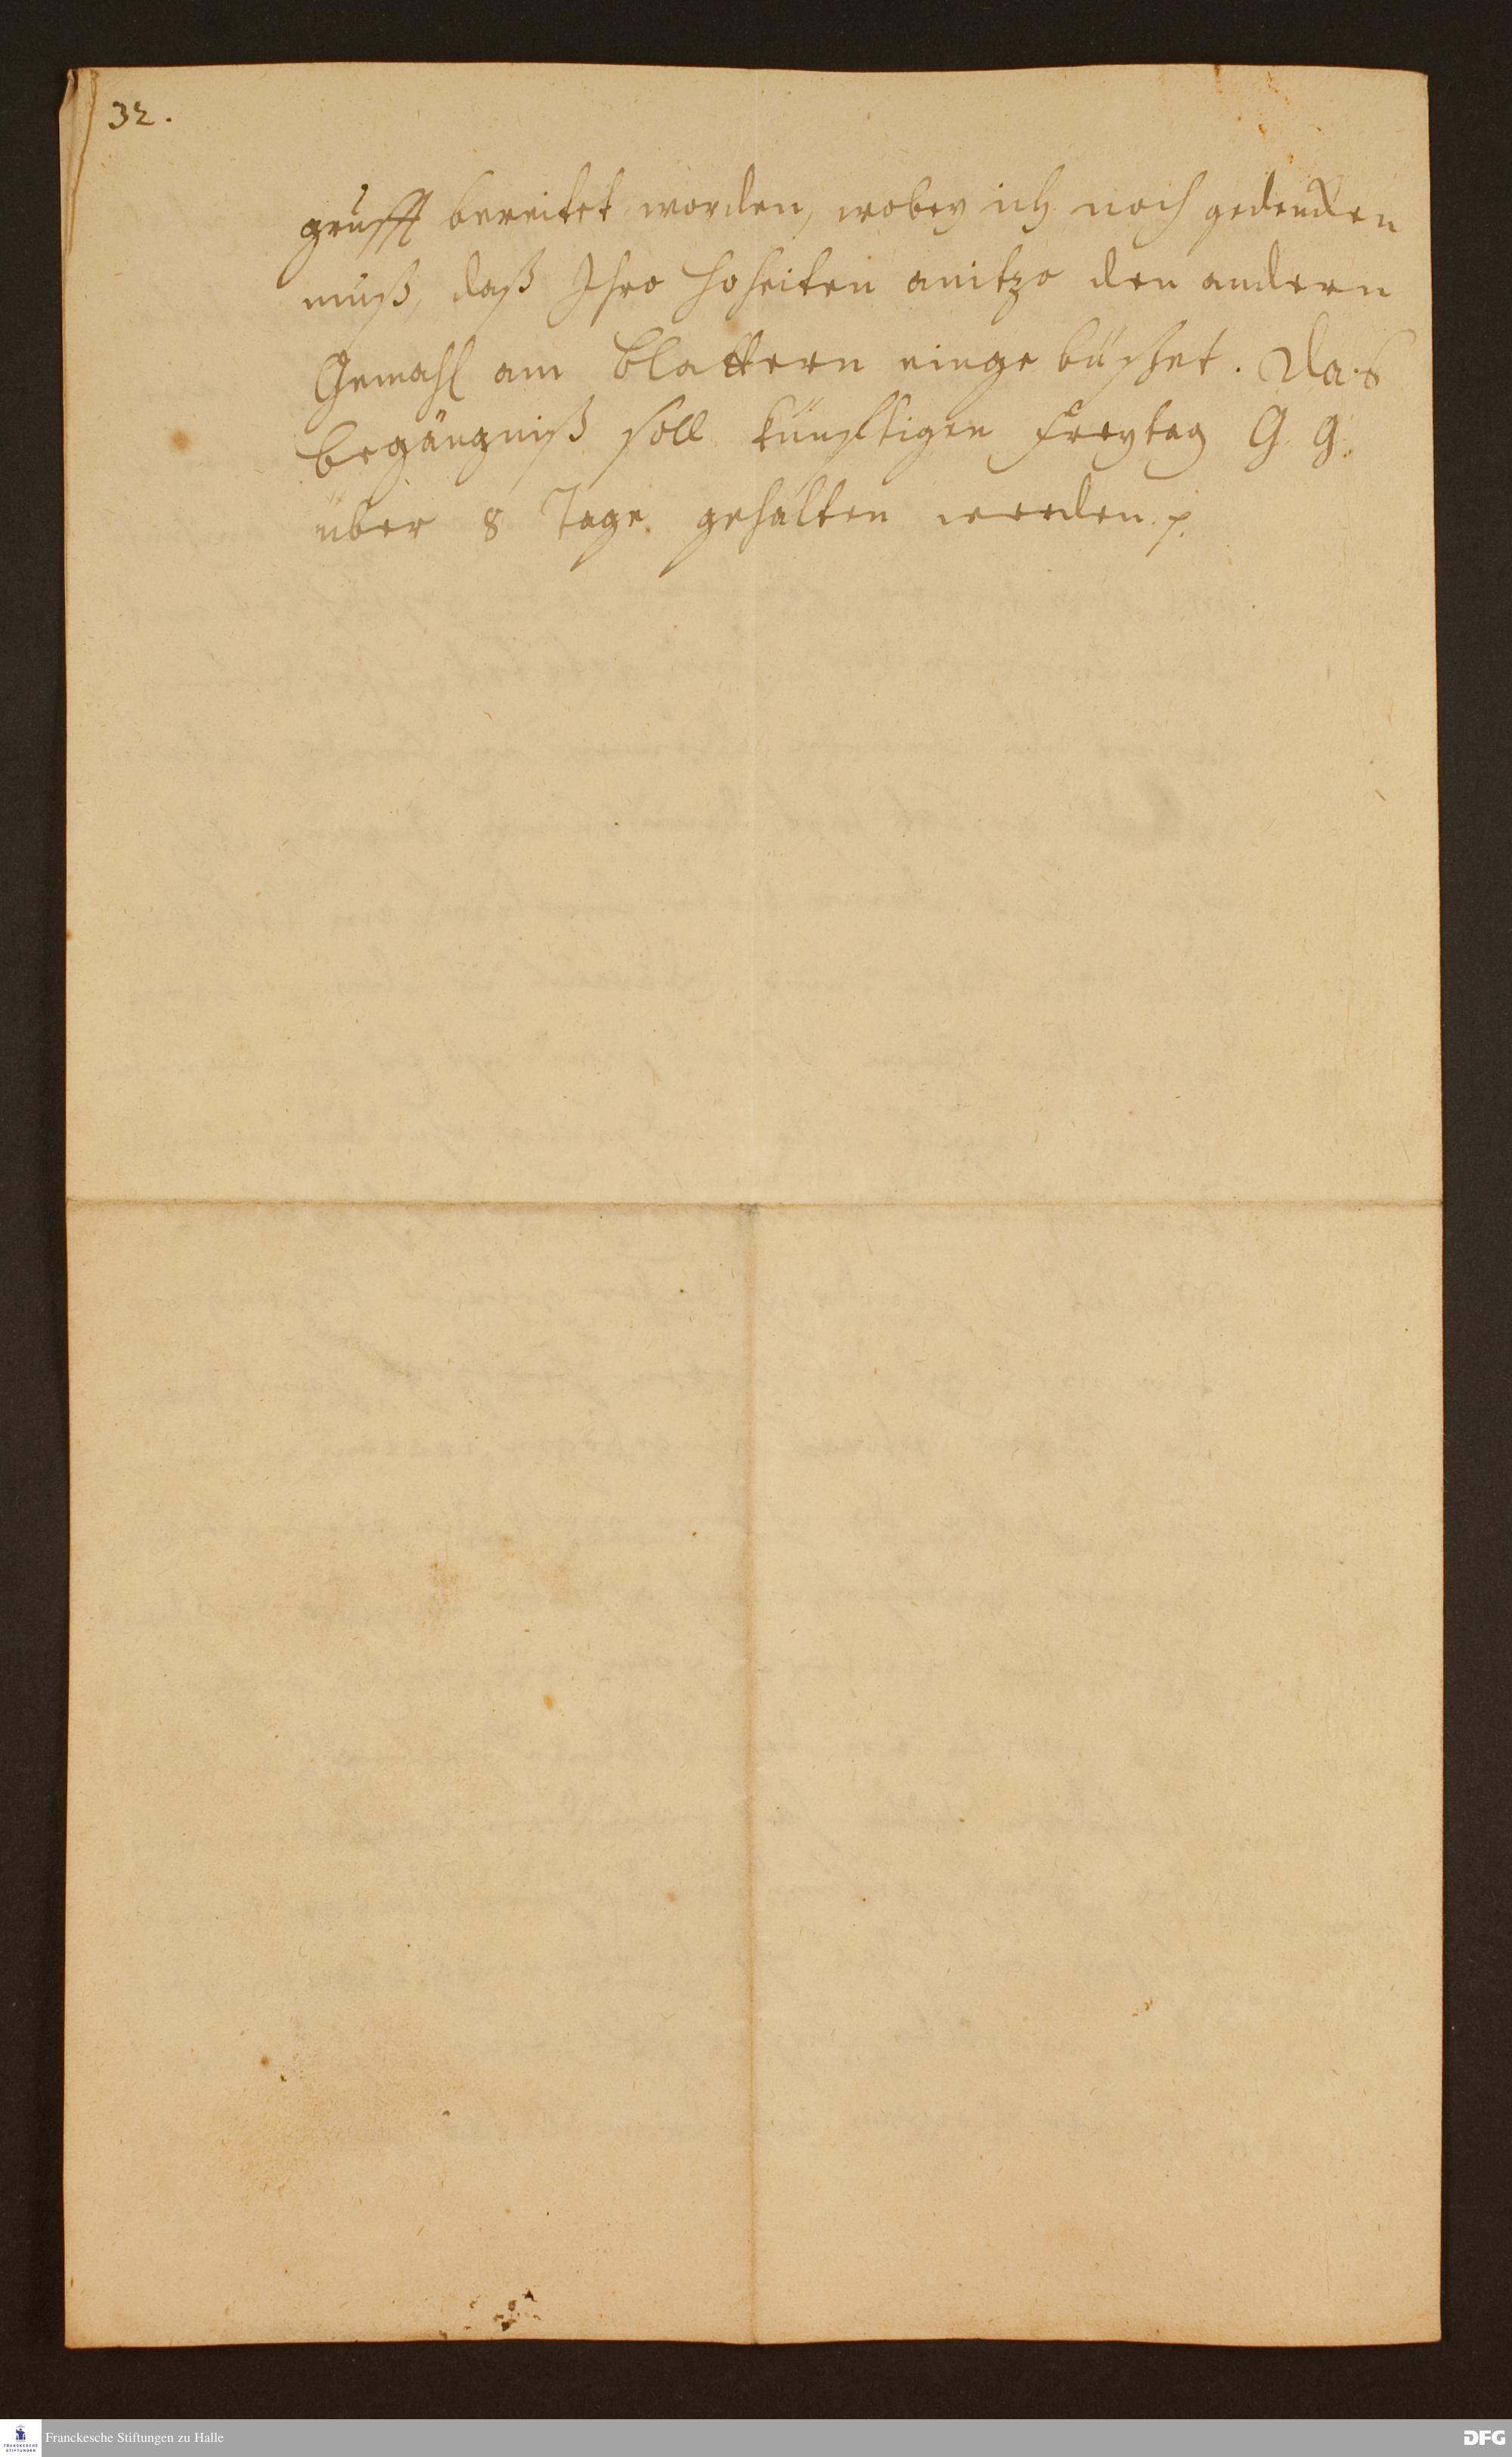 32.
grufft bereitet worden, wobey ich noch gedencken
muß, daß Ihro Hoheiten anitzo den andern
Gemahl am Blattern einge büßet. Das
begängniß soll künfftigen Freytag G. G.
über 8 Tage gehalten werden p.
Franckesche Stiftungen zu Halle
DFG